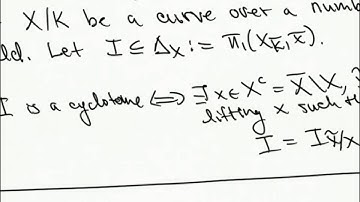 X/K be a curve over a numb
ld. Let I ⊆ Δ_X := π₁(X_K̄, x̄).
I is a cyclotome ⟺ ∃ x ∈ X^c = X̄ \ X,
lifting x such t
I = I_x̃/x